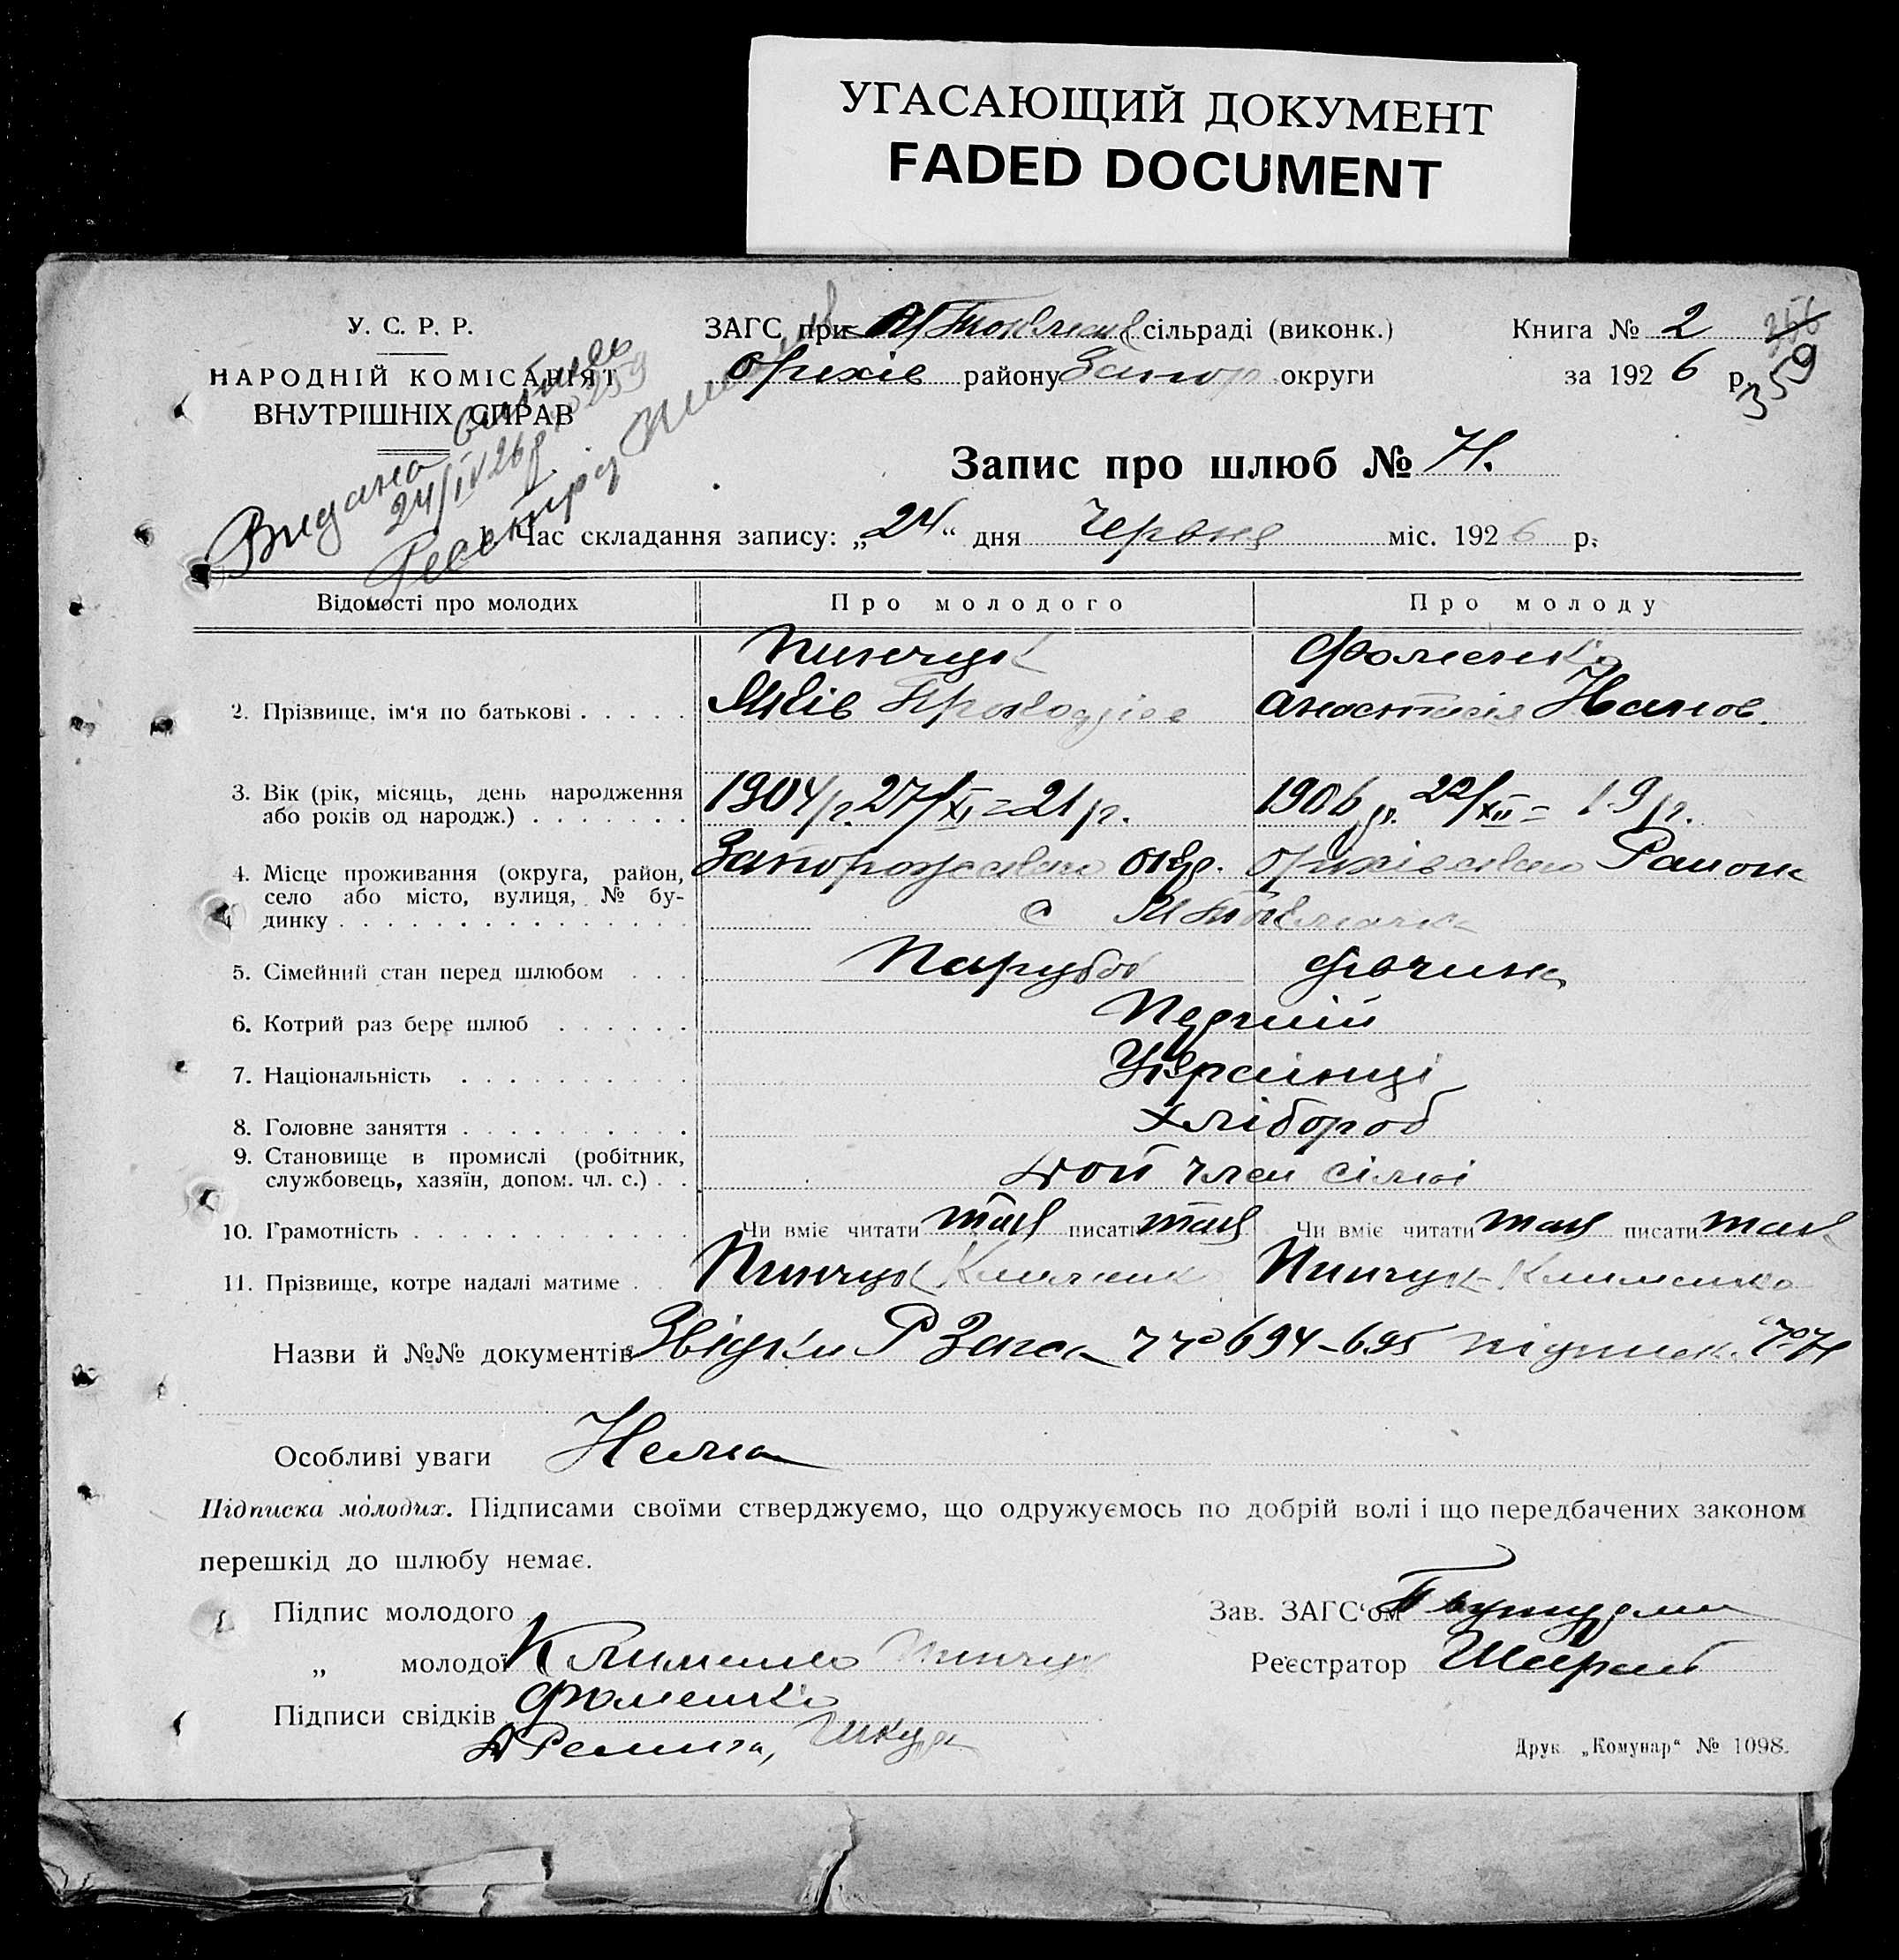 УГАСАЮЩИЙ ДОКУМЕНТ
FADED DOCUMENT
У. С. Р. Р.
НАРОДНІЙ КОМІСАРІЯТ
ВНУТРІШНІХ СПРАВ
Видана
24/IV 26 р.
ЗАГС при сільраді (виконк.)
Оріхів району Запор округи
Книга № 2
за 1926 р.
359
Запис про шлюб №
Час складання запису: „24“ дня Червня міс. 1926 р.
Відомості про молодих Про молодого Про молоду
Пинчук Фоменко
2. Прізвище, ім‘я по батькові Яків Анастасія Иванов.
3. Вік (рік, місяць, день народження
або років од народж.) 1904 р. 27/XI = 21 р. 1906 р. 22/XII = 19 р.
4. Місце проживання (округа, район,
село або місто, вулиця, № бу-
динку Запорожського окр. Оріхівського Району
с
5. Сімейний стан перед шлюбом Парубок дівчина
6. Котрий раз бере шлюб Перший
7. Національність Українці
8. Головне заняття Хлібороб
9. Становище в промислі (робітник,
службовець, хазяїн, допом. чл. с.) доп член сімї
10. Грамотність Чи вміє читати так писати так Чи вміє читати так писати так
11. Прізвище, котре надалі матиме Пинчук Клименко Пинчук-Клименко
Назви й №№ документів Звідки Р Загса 694-695
Особливі уваги Нема
Підписка молодих. Підписами своїми стверджуємо, що одружуємось по добрій волі і що передбачених законом
перешкід до шлюбу немає.
Підпис молодого
Зав. ЗАГС‘ом
„ молодої Клименко Пинчук
Реєстратор
Підписи свідків Фоменко
Шкура
Друк. „Комунар“ № 1098.